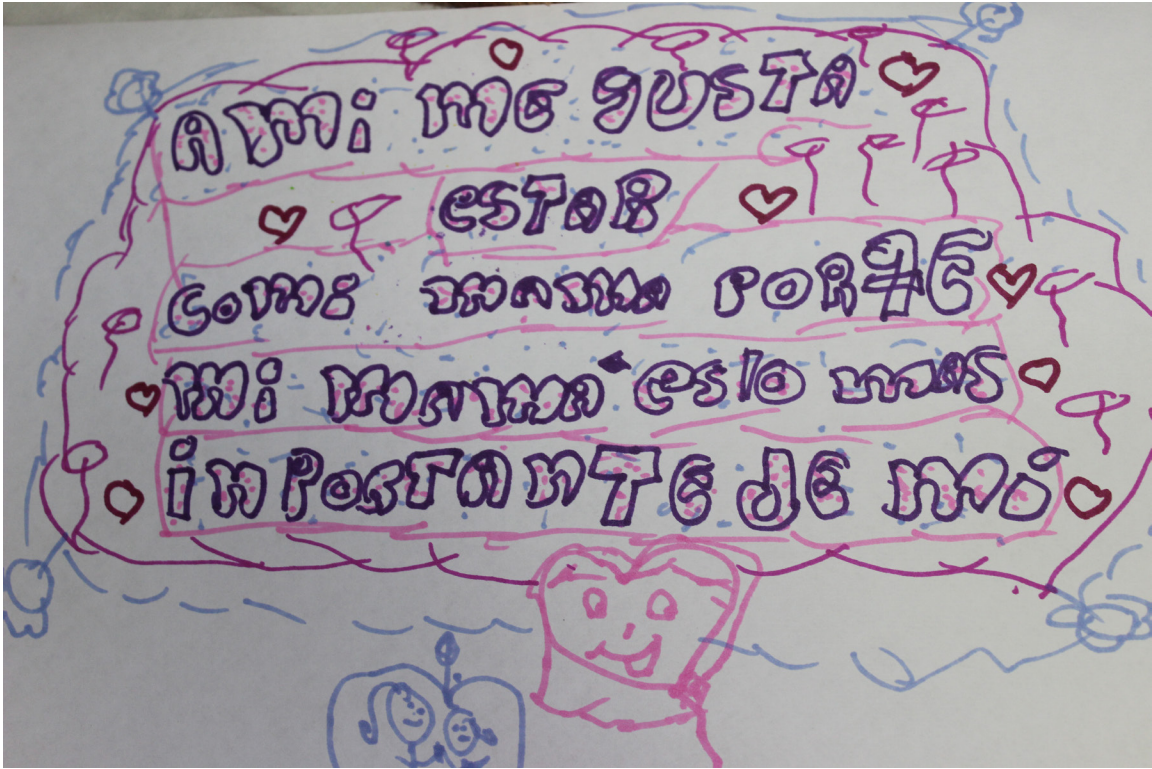 A mi me gusta
estar
comi mama porqe
mi mama es lo mas
inpostante de mi